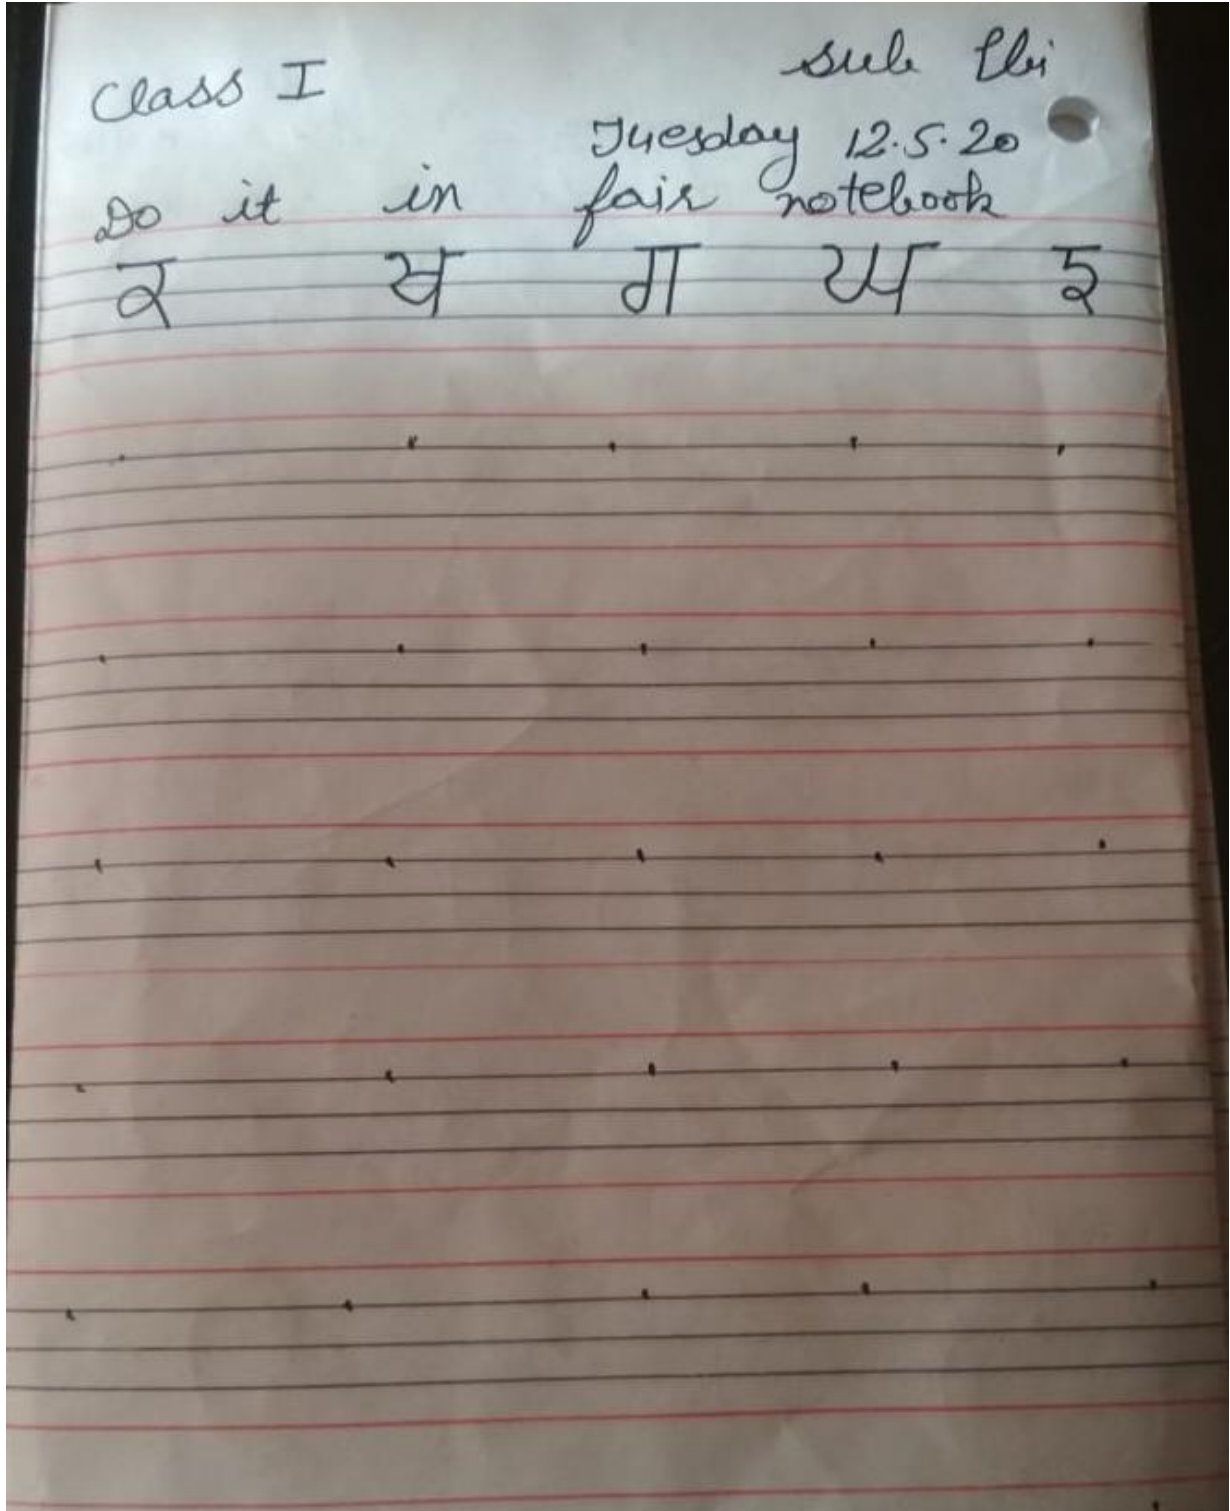 Class I sub Pbi
Tuesday 12.5.20
Do it in fair notebook
ਕ ਖ ਗ ਘ ਙ